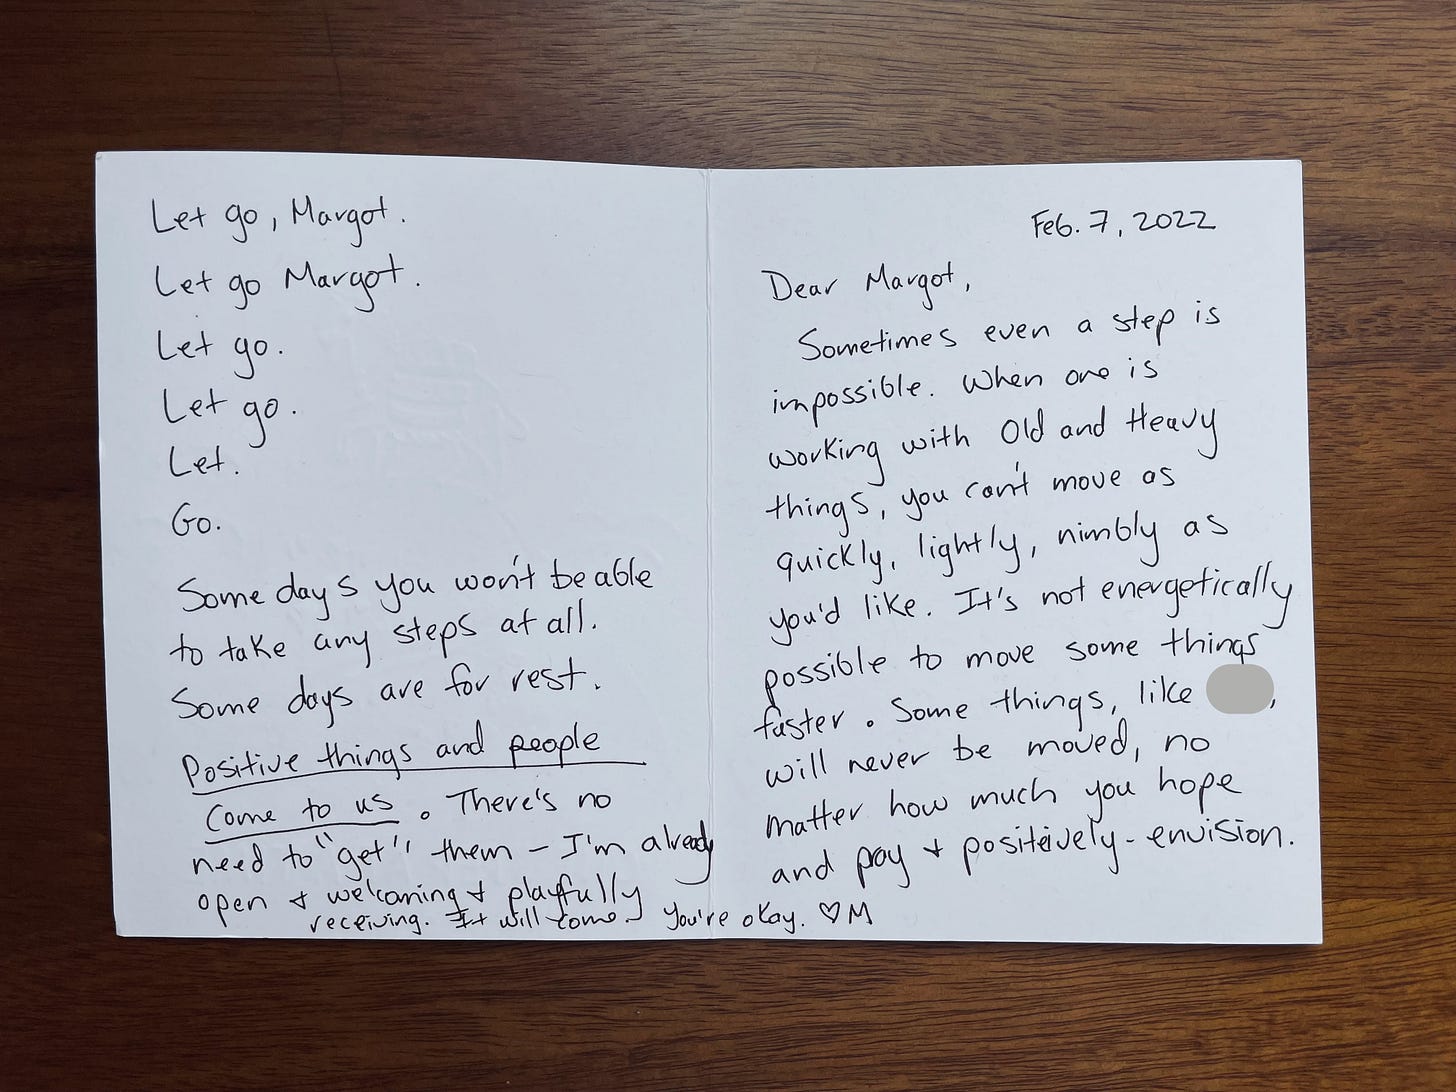 Feb. 7, 2022
Dear Margot,
Sometimes even a step is
impossible. When one is
working with Old and Heavy
things, you can't move as
quickly, lightly, nimbly as
you'd like. It's not energetically
possible to move some things
faster. Some things, like ,
will never be moved, no
matter how much you hope
and pray + positively-envision.
Let go, Margot.
Let go Margot.
Let go.
Let go.
Let.
Go.
Some days you won't be able
to take any steps at all.
Some days are for rest.
Positive things and people
come to us. There's no
need to "get" them - I'm already
open + welcoming + playfully
receiving. It will come. You're okay. ♡M